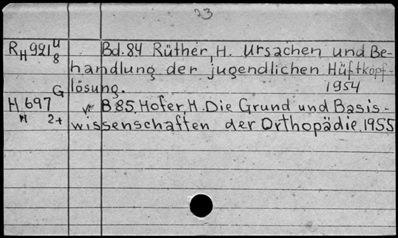 33
R H 921 u 8 Bd. 84 Rüther, H. Ursachen und Be-
handlung der jugendlichen Hüftkopf-
lösung. 1954
G
H 697 B 85. Hofer, H. Die Grund und Basis-
H 2+ wissenschaften der Orthopädie. 1955